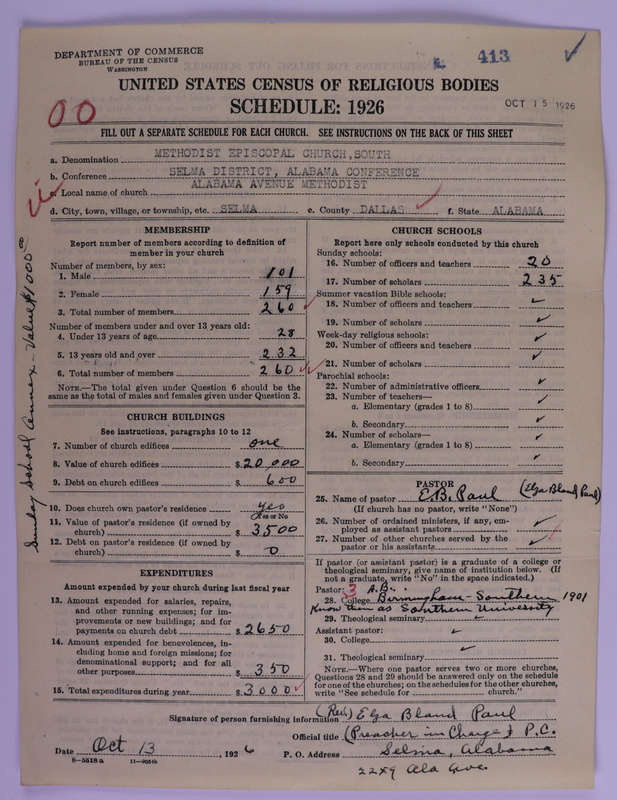 DEPARTMENT OF COMMERCE
BUREAU OF THE CENSUS
WASHINGTON
413
UNITED STATES CENSUS OF RELIGIOUS BODIES
SCHEDULE: 1926
OCT 15 1926
00
FILL OUT A SEPARATE SCHEDULE FOR EACH CHURCH. SEE INSTRUCTIONS ON THE BACK OF THIS SHEET
a. Denomination METHODIST EPISCOPAL CHURCH, SOUTH
b. Conference SELMA DISTRICT, ALABAMA CONFERENCE
c. Local name of church ALABAMA AVENUE METHODIST
d. City, town, village, or township, etc. SELMA e. County DALLAS f. State ALABAMA
MEMBERSHIP
Report number of members according to definition of
member in your church
Number of members, by sex:
1. Male 101
2. Female 159
3. Total number of members 260
Number of members under and over 13 years old:
4. Under 13 years of age 28
5. 13 years old and over 232
6. Total number of members 260
NOTE.—The total given under Question 6 should be the
same as the total of males and females given under Question 3.
CHURCH BUILDINGS
See instructions, paragraphs 10 to 12
7. Number of church edifices one
8. Value of church edifices $20,000
9. Debt on church edifices $ 600
10. Does church own pastor's residence yes
Yes or No
11. Value of pastor's residence (if owned by
church) $ 3500
12. Debt on pastor's residence (if owned by
church) $ 0
EXPENDITURES
Amount expended by your church during last fiscal year
13. Amount expended for salaries, repairs,
and other running expenses; for im-
provements or new buildings; and for
payments on church debt $ 2650
14. Amount expended for benevolences, in-
cluding home and foreign missions; for
denominational support; and for all
other purposes $ 350
15. Total expenditures during year $ 3000
Sunday School Annex - Value $1000.00
CHURCH SCHOOLS
Report here only schools conducted by this church
Sunday schools:
16. Number of officers and teachers 20
17. Number of scholars 235
Summer vacation Bible schools:
18. Number of officers and teachers
19. Number of scholars
Week-day religious schools:
20. Number of officers and teachers
21. Number of scholars
Parochial schools:
22. Number of administrative officers
23. Number of teachers—
a. Elementary (grades 1 to 8)
b. Secondary
24. Number of scholars—
a. Elementary (grades 1 to 8)
b. Secondary
PASTOR
25. Name of pastor E.B. Paul (Elza Bland Paul)
(If church has no pastor, write "None")
26. Number of ordained ministers, if any, em-
ployed as assistant pastors
27. Number of other churches served by the
pastor or his assistants
If pastor (or assistant pastor) is a graduate of a college or
theological seminary, give name of institution below. (If
not a graduate, write "No" in the space indicated.)
Pastor: 3 A.B.
28. College Birmingham-Southern 1901
Know then as Southern University
29. Theological seminary
Assistant pastor:
30. College
31. Theological seminary
NOTE.—Where one pastor serves two or more churches,
Questions 28 and 29 should be answered only on the schedule
for one of the churches; on the schedules for the other churches,
write "See schedule for church."
Signature of person furnishing information (Rev.) Elza Bland Paul
Official title (Preacher in Charge) P.C.
Date Oct 13, 1926 P. O. Address Selma, Alabama
8—5518 a
2229 Ala Ave.